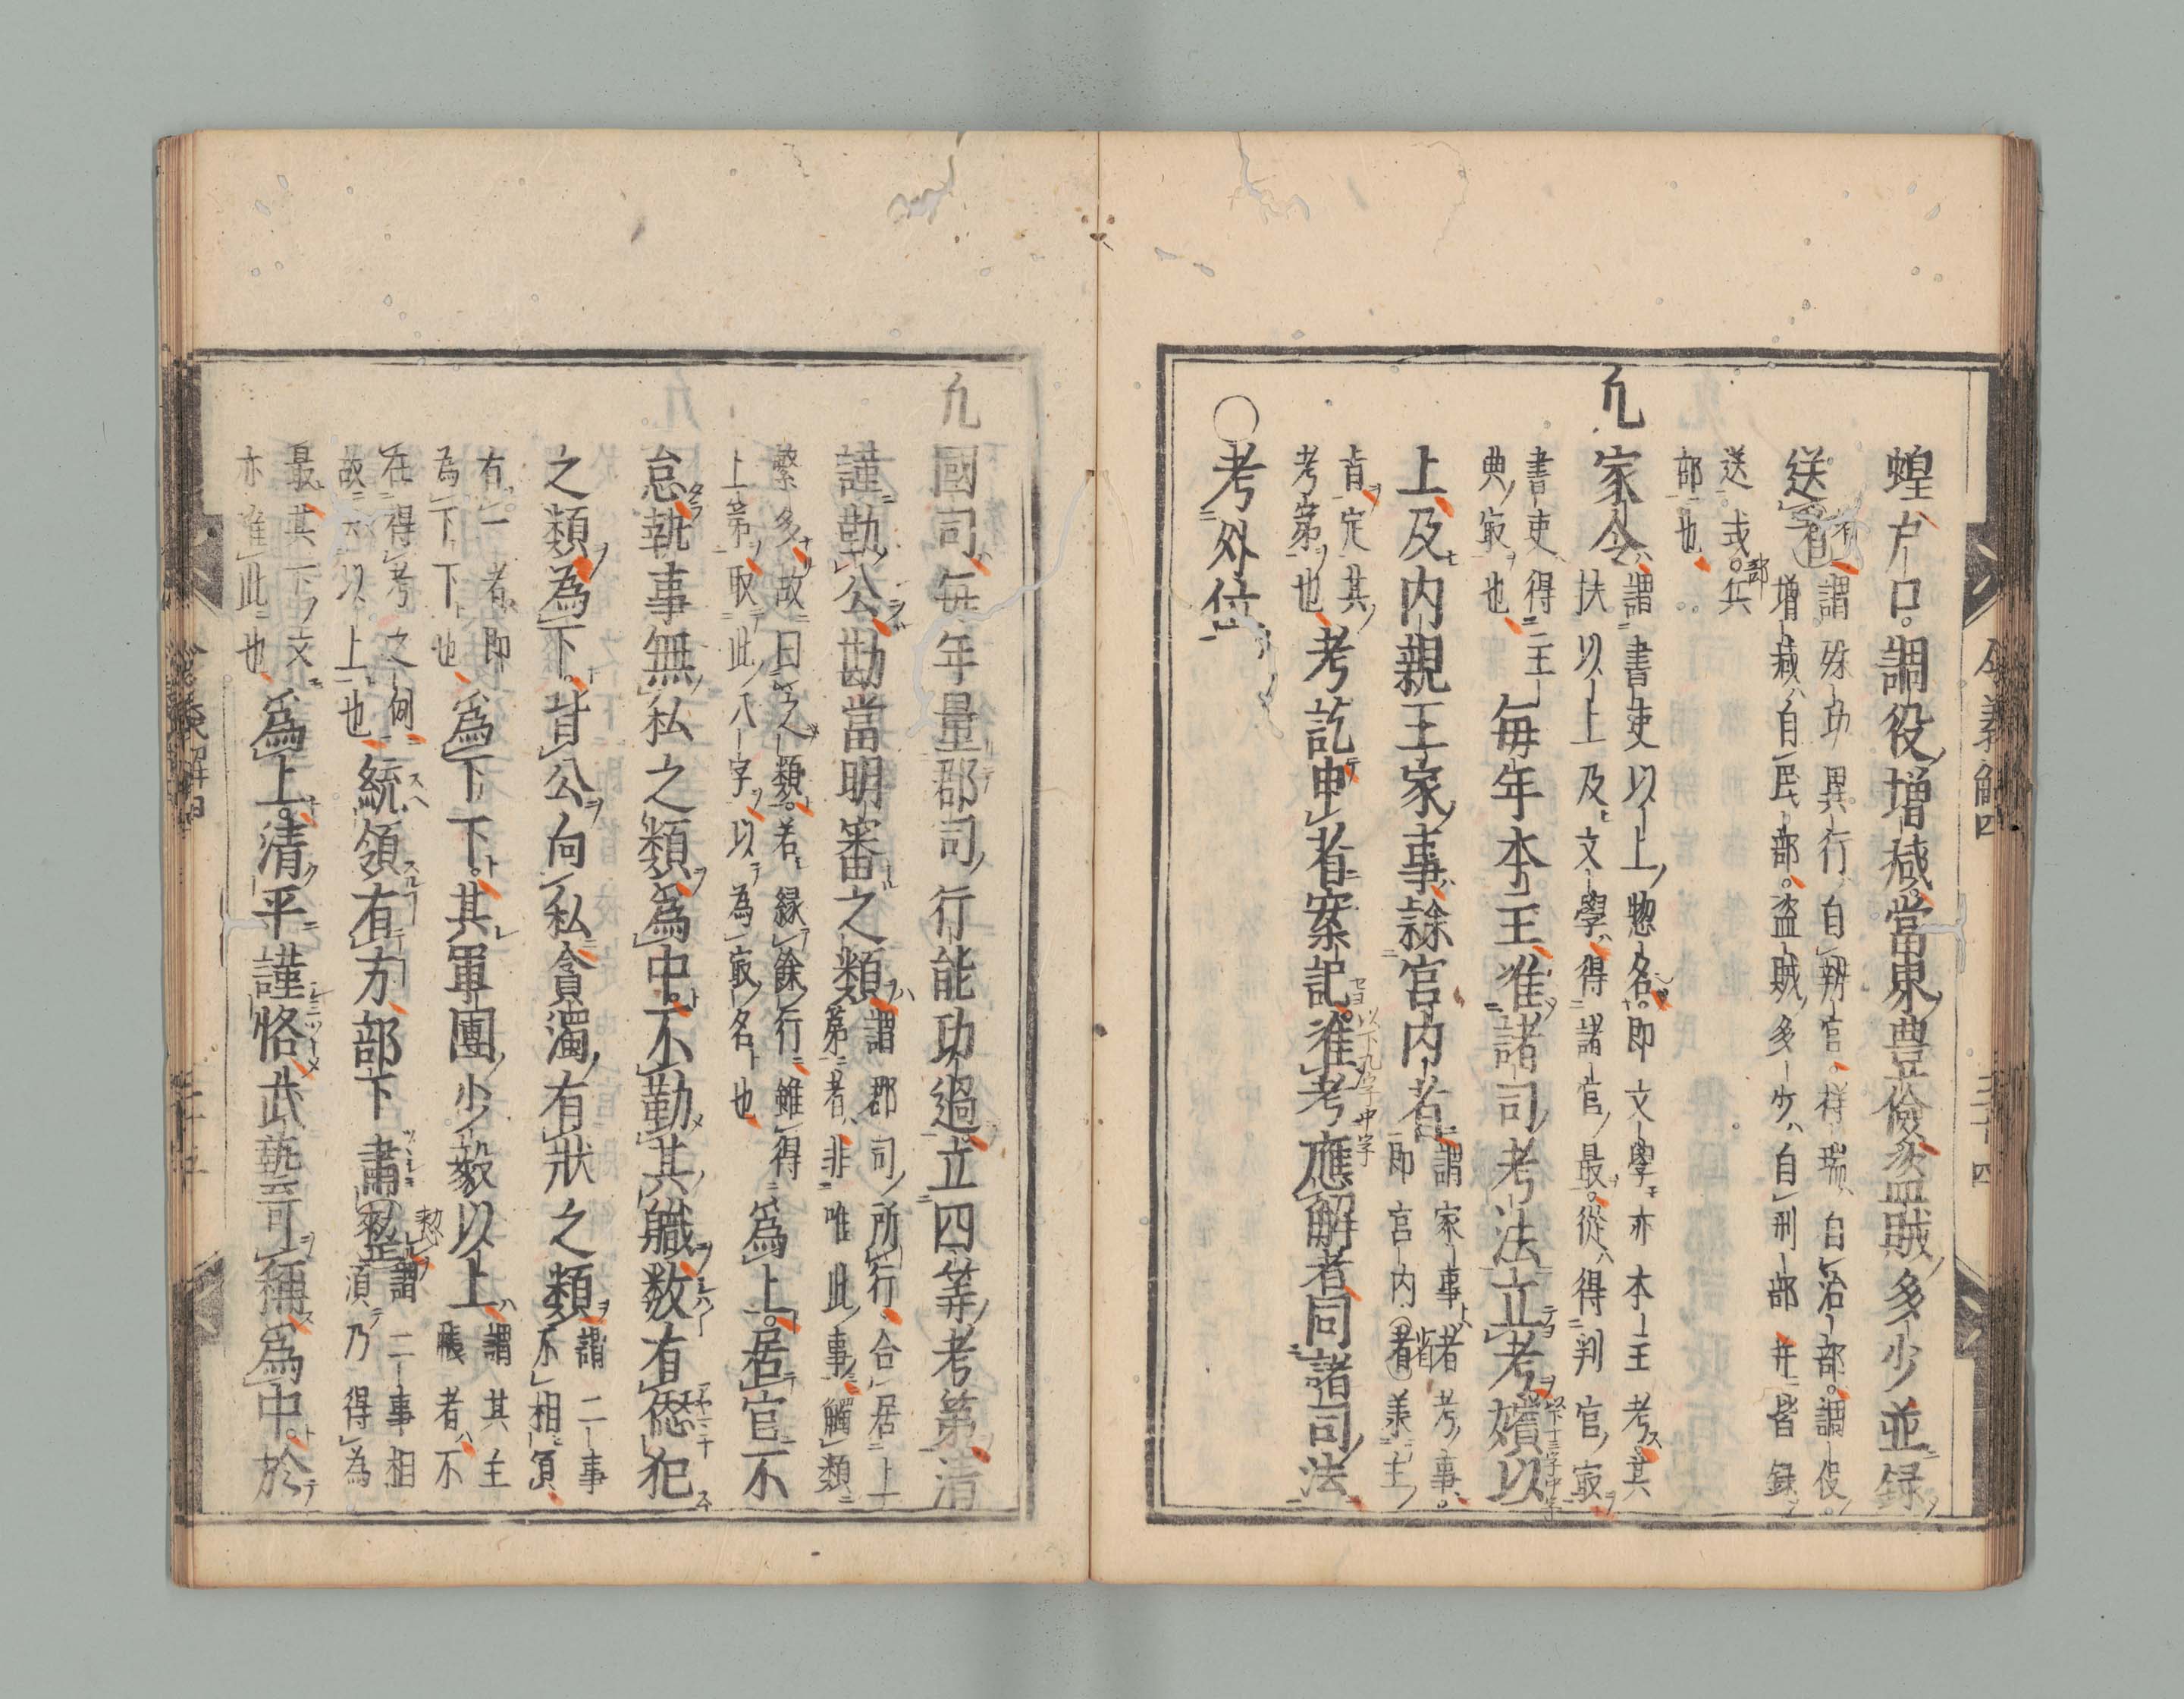 蝗戸口調役増減當東豊儉盗賊多少並録
送省
謂殊功異行自辨官祥瑞自治部調役
増減自民部盗賊多少自刑部并皆録
送或兵
部也
凢家令
謂書吏以上惣名即文學亦本主考其
扶以上及文學得諸官最從得判官最
書吏得
典最也
主毎年本主准諸司考法立考嬪以
上及内親王家事隷官内者
謂家事者考事
即官内省兼主
省定其
考第也
考訖申者案記准考應解者同諸司法
○考外位
令義解四
三十四
凢國司毎年量郡司行能功過立四等考第清
謹勤公勘當明審之類
謂郡司所行合居上
第者非唯此事觸類
繁多故曰之類若縁餘行雖得
上第取此八字以為最名也
爲上居官不
怠執事無私之類爲中不勤其職數有愆犯
之類為下背公向私貪濁有状之類
謂二事
不相須
有一者即
為下下也
爲下下其軍團少毅以上
謂其主
帳者不
在得考之例
故云以上也
統領有方部下肅整
謂二事相
須乃得為
最其下文
亦准此也
爲上清平謹恪武藝可稱爲中於
令義解四
三十五